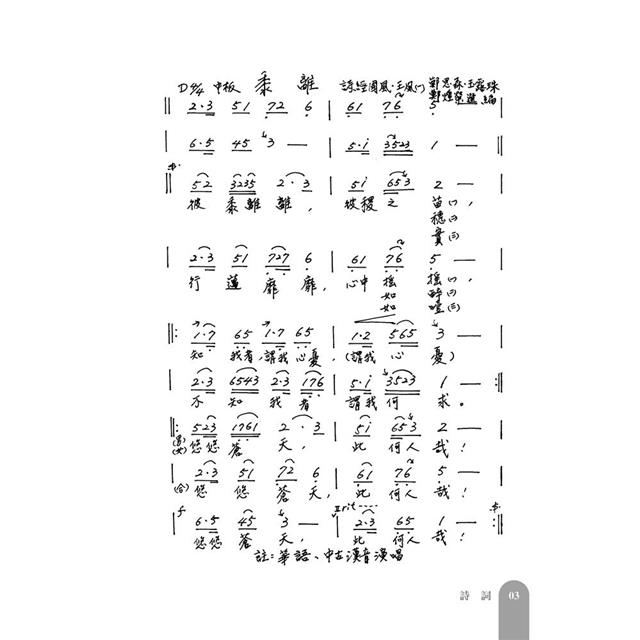 D 4/4 中板 黍離 詩經國風·王風(一)
2·3 51 72 6 | 61 76 5·
6·5 45 3 — | 5·i 3523 1 —
52 3235 2·3 | 5i 653 2 —
彼黍離離， 彼稷之 苗(一)，
穗(二)
實(三)
2·3 51 727 6 | 61 76 5 —
行邁靡靡， 心中 搖(一)，
如 醉(二)
如 噎(三)
1·7 65 1·7 65 | 1·2 565 3 —
知我者，謂我心憂，(謂我心憂)
2·3 6543 2·3 176 | 5·i 3523 1 —
不知我者 謂我何求。
523 1761 2·3 | 5i 653 2 —
(男)(女) 悠悠蒼天， 此何人哉！
2·3 51 72 6 | 61 76 5 —
(合) 悠悠蒼天， 此何人哉！
f rit
6·5 45 3 — | 2·3 65 1 —
悠悠蒼天， 此何人哉！
註：華語、中古漢音演唱
詩詞 03